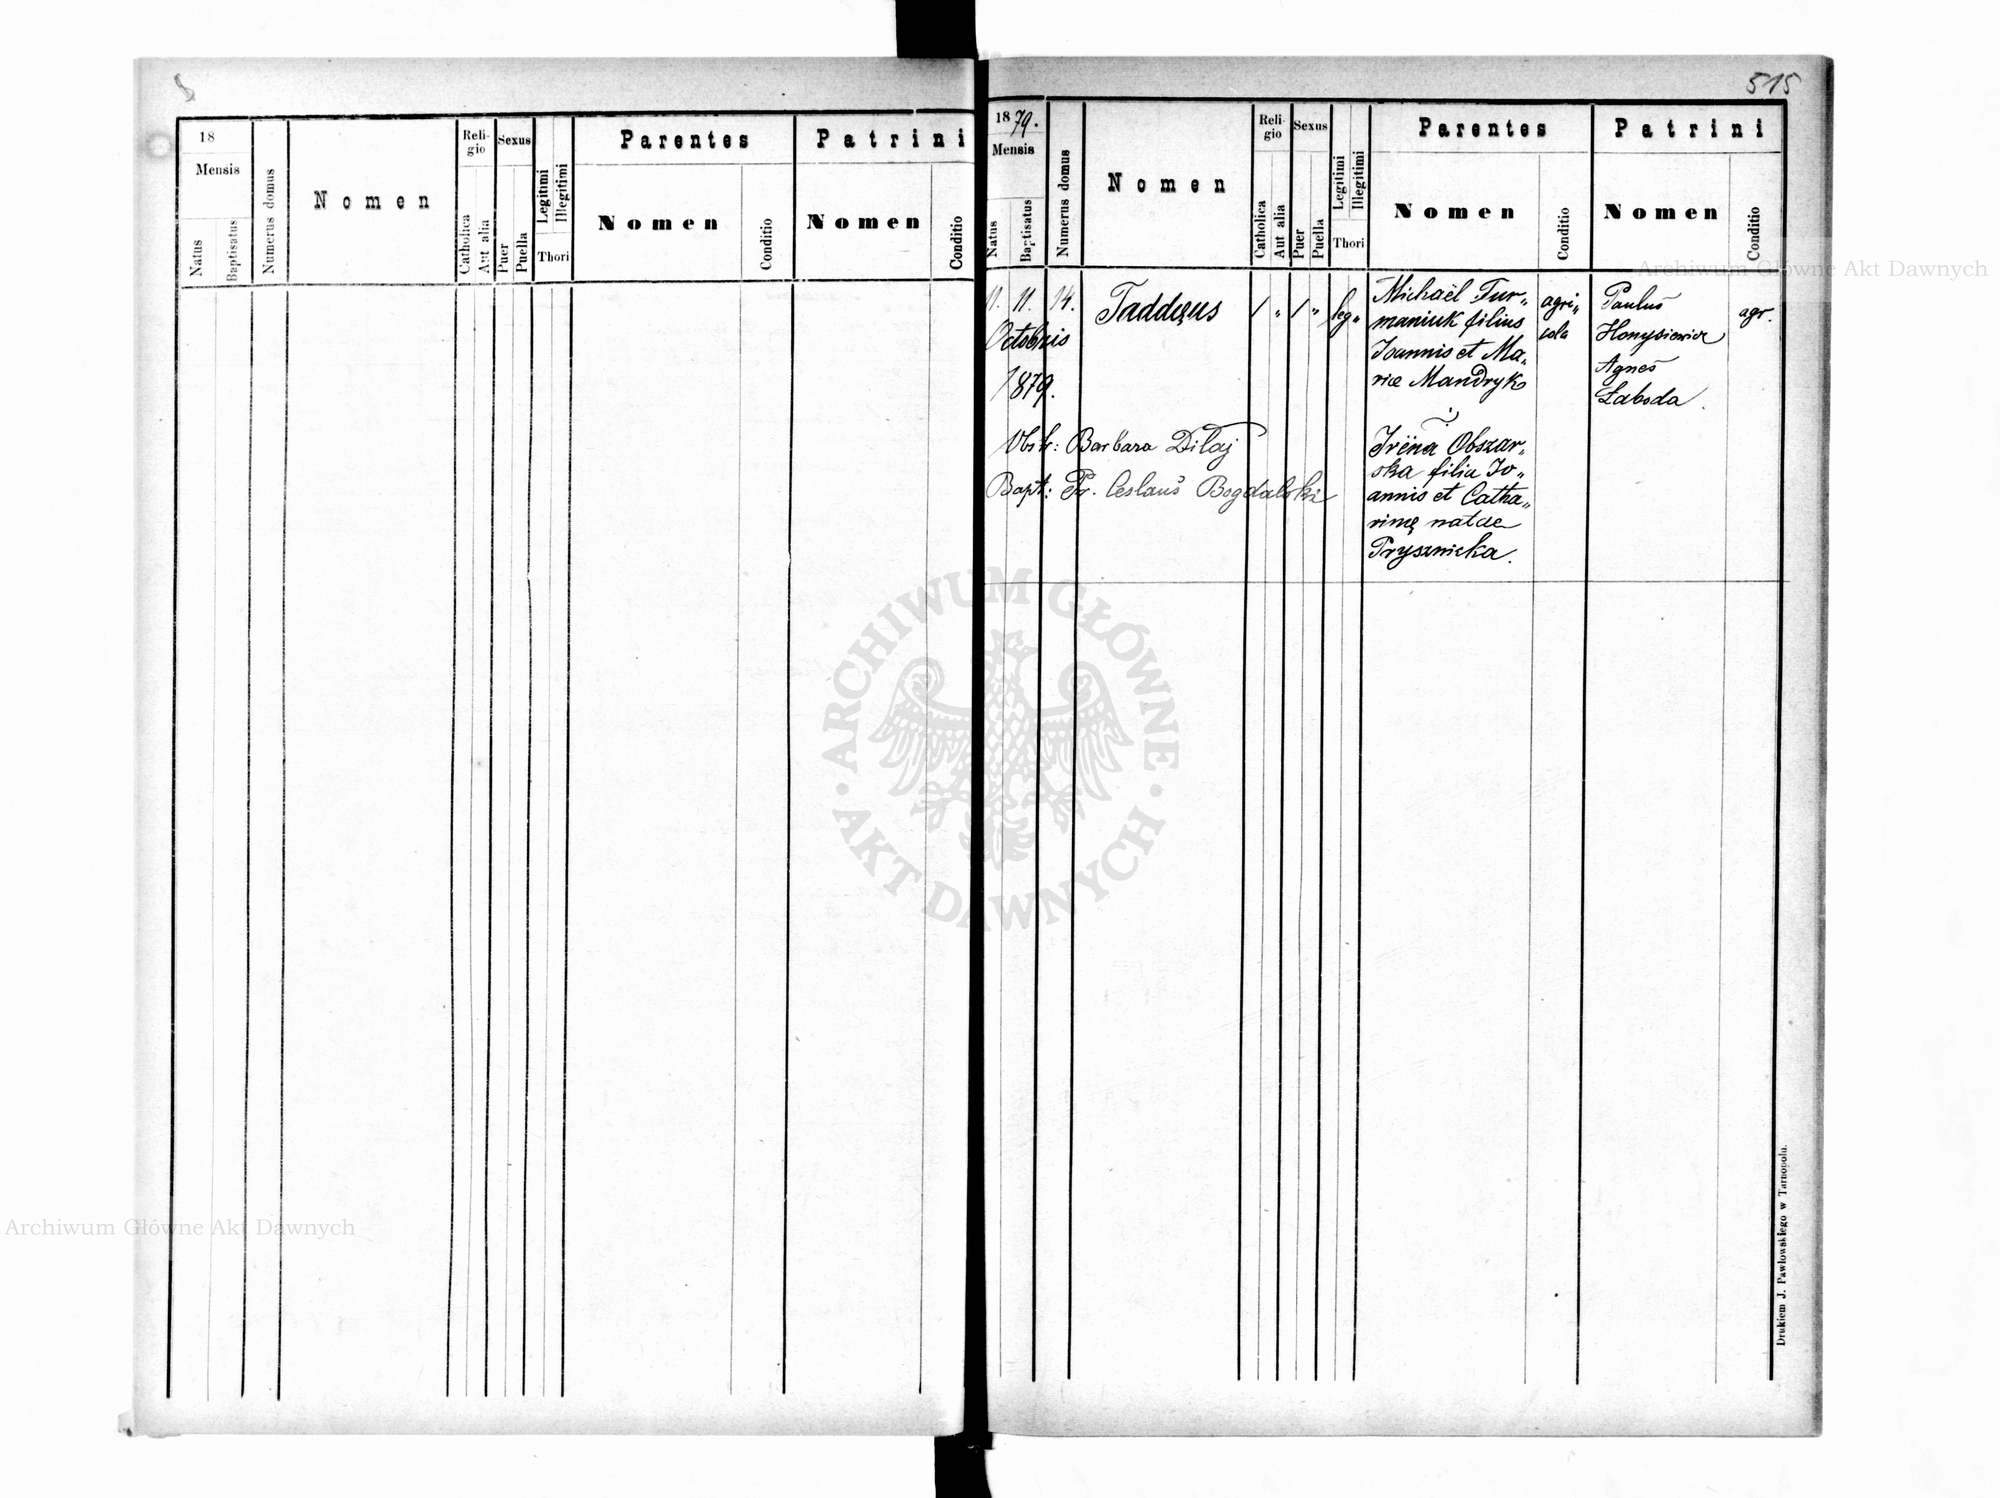 515
18
Mensis
Natus
Baptisatus
Numerus domus
Nomen
Reli-
gio
Catholica
Aut alia
Sexus
Puer
Puella
Legitimi
Illegitimi
Thori
Parentes
Nomen
Conditio
Patrini
Nomen
Conditio
1879.
Mensis
Natus
Baptisatus
Numerus domus
Nomen
Reli-
gio
Catholica
Aut alia
Sexus
Puer
Puella
Legitimi
Illegitimi
Thori
Parentes
Nomen
Conditio
Patrini
Nomen
Conditio
11. 11. 14.
Octobris
1879.
Taddęus
1 " 1 " leg"
Michaël Fur"
maniuk filius
Joannis et Ma"
riæ Mandryk
Irëna Obszar"
ska filia Jo"
annis et Catha"
rinę natae
Prysznicka.
agri"
cola
Pauluš
Agneš
Łaboda.
agr.
Obstr: Barbara Diłaj
Bapt: Fr. Ceslauš Bogdalski
Drukiem J. Pawłowskiego w Tarnopolu.
Archiwum Główne Akt Dawnych
Archiwum Główne Akt Dawnych
ARCHIWUM GŁÓWNE · AKT DAWNYCH ·